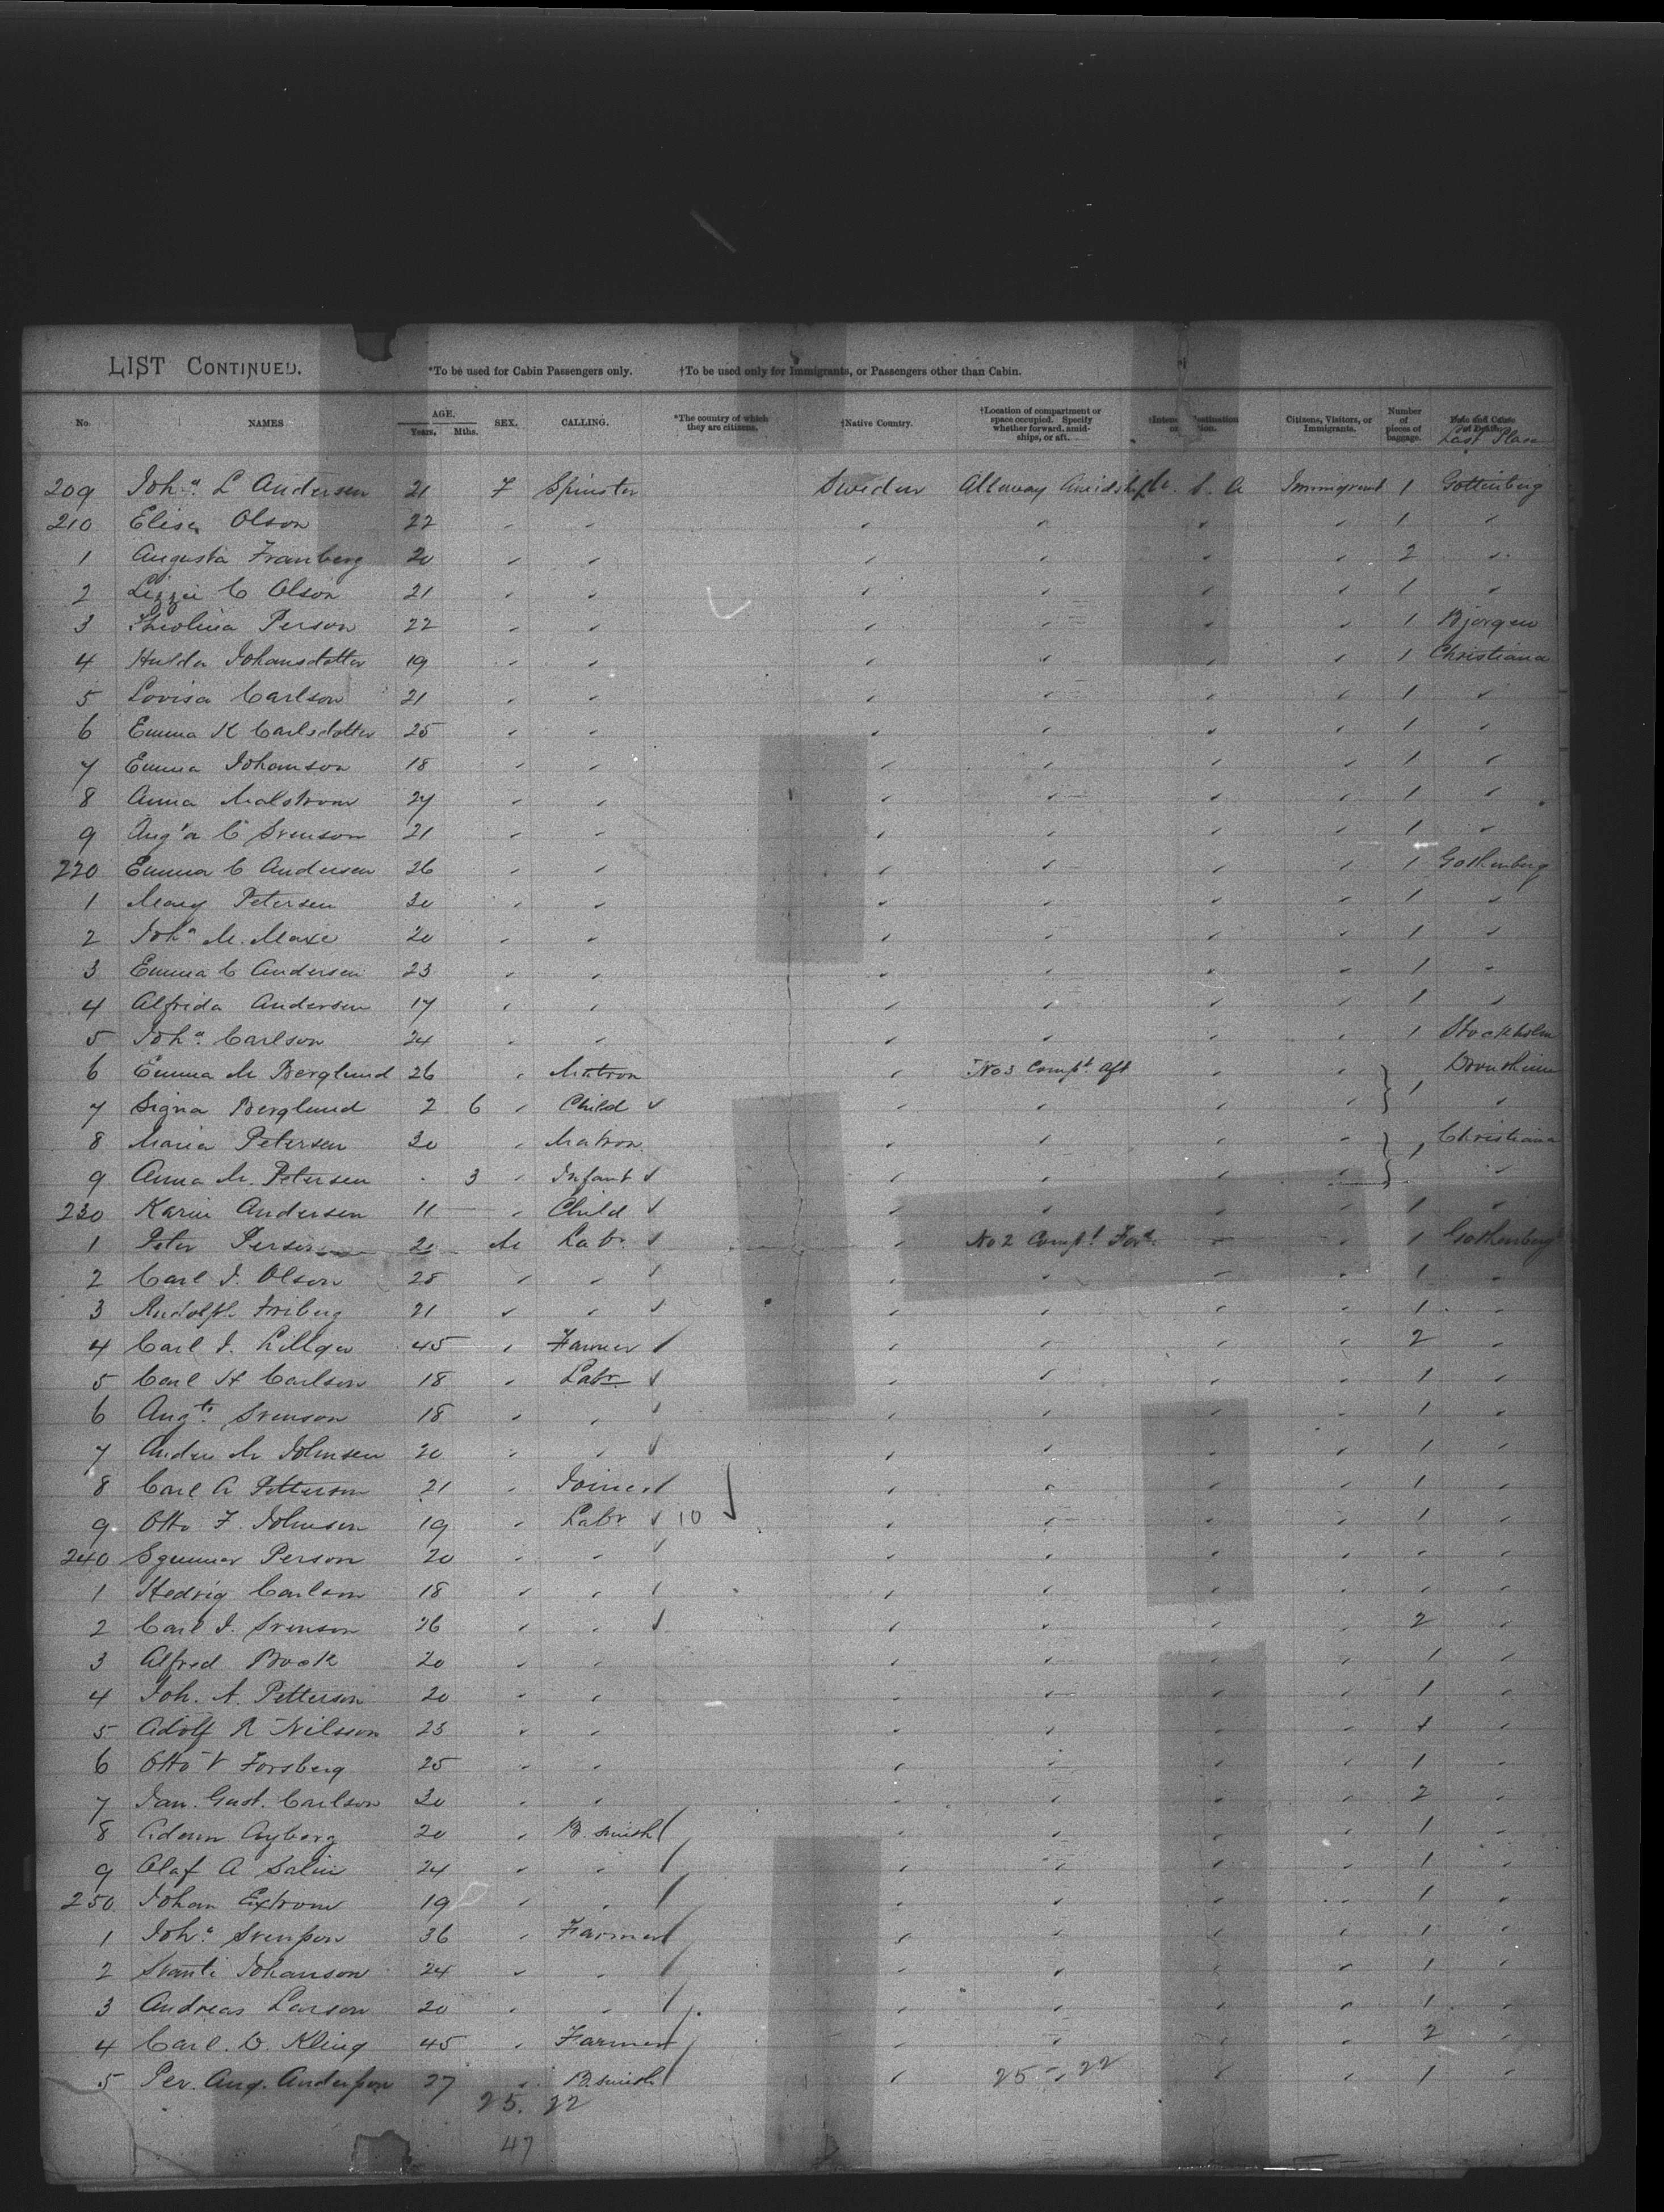 LIST CONTINUED.
*To be used for Cabin Passengers only. †To be used only for Immigrants, or Passengers other than Cabin.
No. NAMES AGE. Years. Mths. SEX. CALLING. *The country of which they are citizens. †Native Country. †Location of compartment or space occupied. Specify whether forward, amidships, or aft. Citizens, Visitors, or Immigrants. Number of pieces of baggage. Date and Cause of Death.
209 Joh.a L Andersen 21 F Spinster Sweden Alleway Amidships U. S. A Immigrant 1 Gottenberg
210 Elisa Olson 22 " " " " " " 1 "
1 Augusta Franberg 20 " " " " " " 2 "
2 Lizzie C Olson 21 " " " " " " 1 "
3 Person 22 " " " " " " 1 Bjorgen
4 Hulda Johansdotter 19 " " " " " " 1 Christiana
5 Lovisa Carlson 21 " " " " " " 1 "
6 Emma K Carlsdotter 25 " " " " " " 1 "
7 Emma Johanson 18 " " " " " " 1 "
8 Anna Malstrom 27 " " " " " " 1 "
9 Aug'a C Svenson 21 " " " " " " 1 "
220 Emma C Andersen 26 " " " " " " 1 Gothenberg
1 Mary Petersen 30 " " " " " " 1 "
2 Joh.a M. 20 " " " " " " 1 "
3 Emma C Andersen 23 " " " " " " 1 "
4 Alfrida Andersen 17 " " " " " " 1 "
5 Joh.a Carlson 24 " " " " " " 1 Stockholm
6 Emma M Berglund 26 " Matron " No 3 Compt. Aft " " Drontheim
7 Signa Berglund 2 6 " Child " " " " 1 "
8 Maria Petersen 30 " Matron " " " " 1 Christiana
9 Anna M. Petersen 3 " Infant " " " " "
230 Karin Andersen 11 " Child " " " " 1 "
1 Peter 20 M Labr. " No 2 Compt. Ford. " " 1 Gothenberg
2 Carl J. Olson 28 " " " " " " 1 "
3 Rudolph Friberg 21 " " " " " " 1 "
4 Carl J. 45 " Farmer " " " " 2 "
5 Carl H Carlson 18 " Labr. " " " " 1 "
6 Aug.t Svenson 18 " " " " " " 1 "
7 Andre M Johnsen 20 " " " " " " 1 "
8 Carl A Petterson 21 " Joiner " " " " 1 "
9 Otto F. Johnsen 19 " Labr 10 " " " " 1 "
240 Person 20 " " " " " " " "
1 Hedvig Carlson 18 " " " " " " " "
2 Carl J. Svenson 26 " " " " " " 2 "
3 Alfred Book 20 " " " " " " 1 "
4 Joh. A. Petterson 20 " " " " " " 1 "
5 Adolf R Nilsson 23 " " " " " " 1 "
6 Otto V Forsberg 25 " " " " " " 1 "
7 Jan. Gust. Carlson 30 " " " " " " 2 "
8 20 " B. smith " " " " 1 "
9 Olaf A Salin 24 " " " " " " 1 "
250 Johan Extrom 19 " " " " " " 1 "
1 Joh.a Svenson 36 " Farmer " " " " 1 "
2 Svante Johanson 24 " " " " " " 1 "
3 Andreas Larson 20 " " " " " " 1 "
4 Carl. D. Kling 45 " Farmer " " " " 2 "
5 Per. Aug. Anderson 27 " B. smith " 25 - 22 " " 1 "
25. 22
47